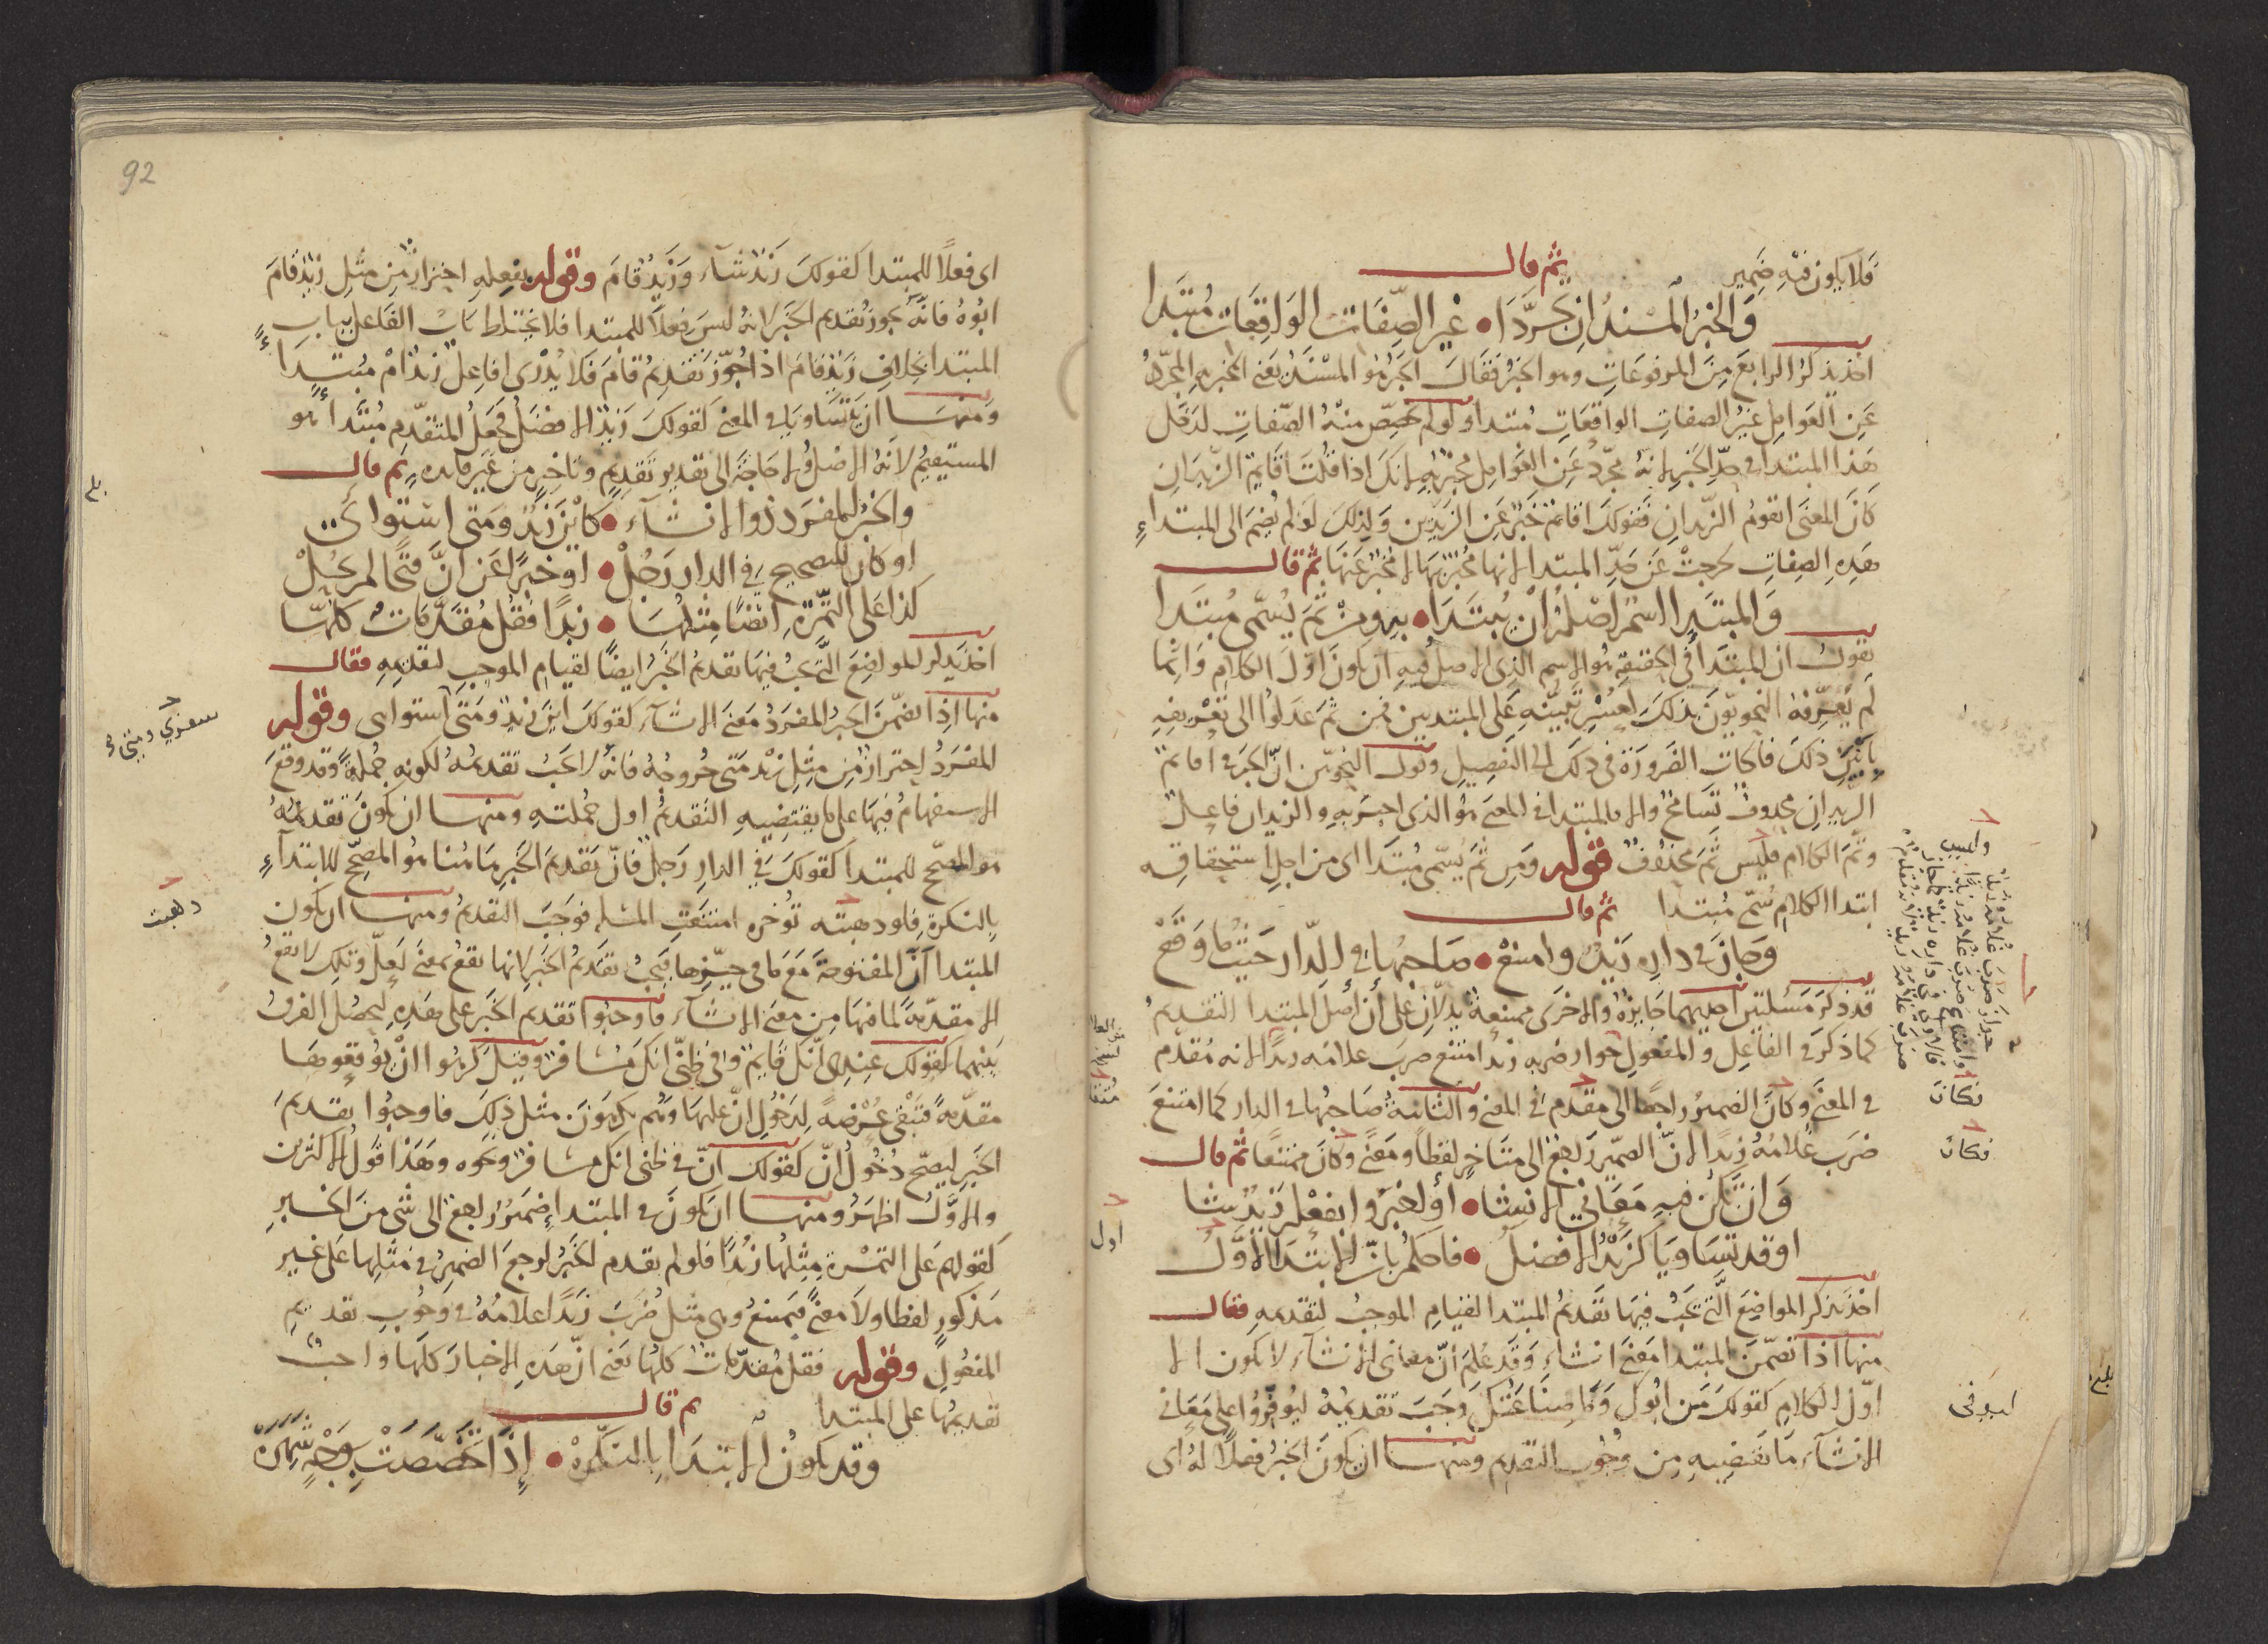 فلا يكون فيه ضمير ثم قال
والخبر المسند إن تجردا • غير الصفات الواقعات مبتدا
أخذ يذكر الرابع من المرفوعات وهو الخبر فقال الخبر هو المسند يعني المخبر به المجرد
عن العوامل غير الصفات الواقعات مبتدا ولو لم تخصص منه الصفات لدخل
هذا المبتدا في حد الخبر لانه مجرد عن العوامل مخبر به لانك اذا قلت اقايم الزيدان
كان المعنى ايقوم الزيدان فقولك اقايم خبر عن الزيدين ولذلك لو لم يضم الى المبتداء
هذه الصفات لخرجت عن حد المبتدا لانها مخبر بها لا مخبر عنها ثم قال
والمبتدا اسم اصله ان يبتدا • به ومن ثم يسمى مبتدا
يقول ان المبتدا في الحقيقة هو الاسم الذي الاصل فيه ان يكون اول الكلام وانما
لم يعرفه النحويون بذلك لعسر تبينه على المبتديين فمن ثم عدلوا الى تعريفه
ذلك فالجات الضرورة في ذلك الى التفصيل وقول النحويين ان الخبر في اقايم
الزيدان محذوف تسامح والا فالمبتدا في المعنى هو الذي اخبر به والزيدان فاعل
وتم الكلام فليس ثم محذوف قوله ومن ثم يسمى مبتدا اى من اجل استحقاقه
ابتدا الكلام سمي مبتدا ثم قال
وجاز في داره زيد وامتنع • صاحبها في الدار حيث ما وقع
قد ذكر مسئلتين احديهما جايزة والاخرى ممتنعة يدلان على أن أصل المبتدا التقديم
كما ذكر في الفاعل والمفعول جواز ضربه زيد امتنع ضرب غلامه زيدا لانه مقدم
في المعنى وكان الضمير راجعا الى مقدم في المعنى والثانية صاحبها في الدار كما امتنع
ضرب غلامه زيدا لان الضمير راجع الى متاخر لفظا ومعنى وكان ممتنعا ثم قال
وان تكن فيه معاني الانشا • أو الخبر وا بفعله زيد يشا
او قد تساويا كزيد الافضل • فاحكم بان الابتدا الاول
اخذ يذكر المواضع التي يجب فيها تقديم المبتدا لقيام الموجب لتقديمه فقال
منها اذا تضمن المبتدا معنى انشاء وقد علم ان معاني الانشاء لا يكون الا
اول الكلام كقولك من ابوك وما صناعتك وجب تقديمه ليوفروا على معاني
الانشاء ما تقتضيه من وجوب التقديم ومنها ان يكون الخبر فعلا له اى
فكان
فكان
اول
ليوفى
92
اى فعلا للمبتدا كقولك زيد شاء وزيد قام وقوله بفعله احتراز من مثل زيد قام
ابوه فانه يجوز تقديم الخبر لانه ليس فعلا للمبتدا فلا يختلط باب الفاعل بباب
المبتدا بخلاف زيد قام اذ لو جوز تقديم قام فلا يدرى افاعل زيد ام مبتدا
ومنها ان يتساويا في المعنى كقولك زيد الافضل فجعل المتقدم مبتدأ هو
المستقيم لانه الاصل ولا حاجة الى تقدير تقديم وتاخير من غير فايدة ثم قال
والخبر المفرد ذو الانشاء • كاين زيد ومتى استوائي
او كان للتصحيح في الدار رجل • او خبرا عن ان فتحا لم يحل
كذا على التمرة ايضا مثلها • زبدا فقل مقدمات كلها
اخذ يذكر المواضع التي يجب فيها تقديم الخبر ايضا لقيام الموجب لتقديمه فقال
منها اذا تضمن الخبر المفرد معنى الانشاء كقولك اين زيد ومتى استوائي وقوله
المفرد احتراز من مثل زيد متى خروجه فانه لا يجب تقديمه لكونه جملة وقد وقع
الاستفهام فيها على ما يقتضيه التقديم اول جملته ومنها ان يكون تقديمه
هو المصحح للمبتدا كقولك في الدار رجل فان تقديم الخبر هاهنا هو المصحح للابتداء
بالنكرة فلو ذهبت تؤخره امتنعت المسلة فوجب التقديم ومنها ان يكون
المبتدا ان المفتوحة مع ما في حيزها فيجب تقديم الخبر لانها تقع بمعنى لعل وتلك لا تقع
الا مقدمة لما فيها من معنى الانشاء فاوجبوا تقديم الخبر على هذه ليحصل الفرق
بينهما كقولك عندي انك قايم وفي ظني انك مسافر وقيل كرهوا ان يوقعوها
مقدمة فتبقى عرضة لدخول ان عليها وهم يكرهون مثل ذلك فاوجبوا تقديم
الخبر ليصح دخول ان كقولك ان في ظني انك مسافر ونحوه وهذا قول الاكثرين
والاول اظهر ومنها ان يكون في المبتدا ضمير راجع الى شي من الخبر
كقولهم على التمرة مثلها زبدا فلو لم يقدم الخبر لرجع الضمير في مثلها على غير
مذكور لفظا ولا معنى فيمتنع وهي مثل ضرب زيدا غلامه في وجوب تقديم
المفعول وقوله فقل مقدمات كلها يعني ان هذه الاخبار كلها واجب
تقديمها على المبتدا ثم قال
وقد يكون الابتدا بالنكرة • إذا تخصصت بوجه